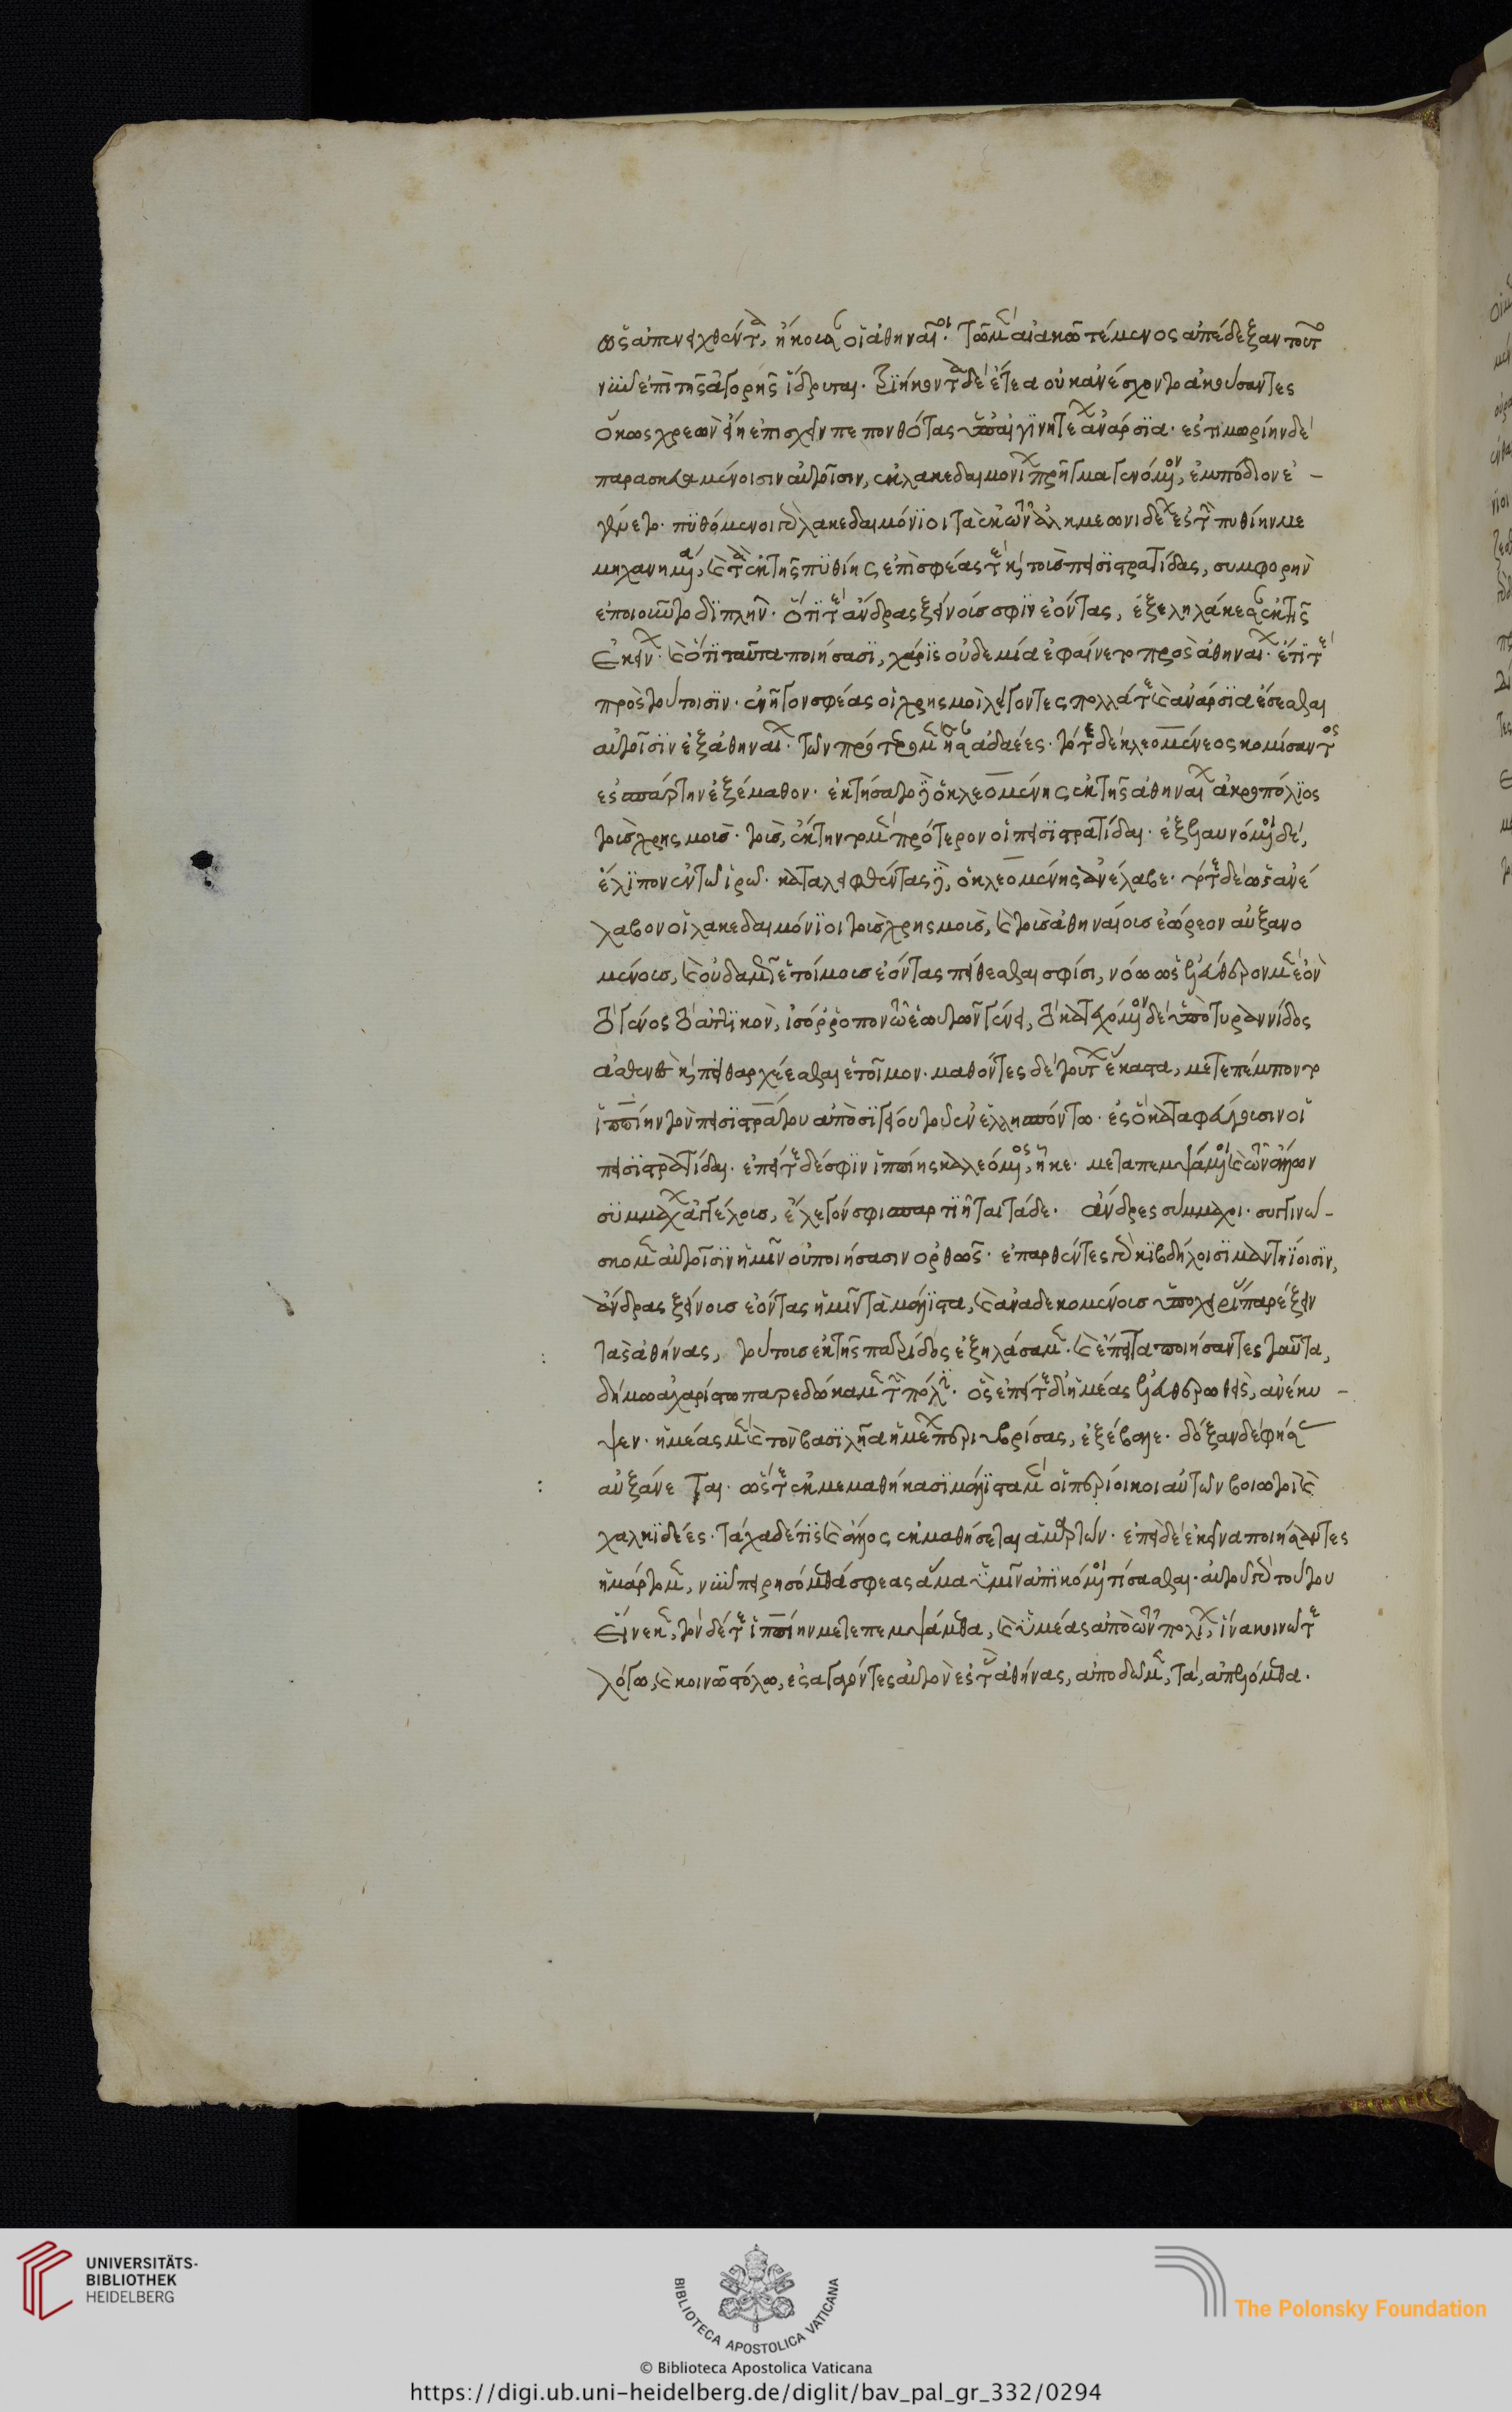 ὡς ἀπενειχθέντα, ἤκουσαν οἱ ἀθηναῖοι. τῶ μὲν αἰακῶ τέμενος ἀπέδεξαν τοῦτο
νῦν ἐπὶ τῆς ἀγορῆς ἵδρυται. τριήκοντα δὲ ἔτεα οὐκ ἀνέσχοντο ἀκούσαντες
ὅκως χρεὼν εἴη ἐπισχεῖν πεπονθότας ὑπ' αἰγινητέων ἀνάρσια. ἐς τιμωρίην δὲ
παρασκευαζομένοισιν αὐτοῖσιν, ἐκ λακεδαιμονίων πρῆγμα γενόμενον, ἐμπόδιον ἐ-
γένετο. πυθόμενοι γὰρ λακεδαιμόνιοι τὰ ἐκ τῶν ἀλκμεωνιδέων ἐς τὴν πυθίην με
μηχανημένα, καὶ τὰ ἐκ τῆς πυθίης ἐπὶ σφέας τε καὶ τοὺς πεισιστρατίδας, συμφορὴν
ἐποιοῦντο διπλῆν. ὅτι τε ἄνδρας ξείνους σφιν ἐόντας, ἐξεληλάκεσαν ἐκ τῆς
ἐκείνων. καὶ ὅτι ταῦτα ποιήσασι, χάρις οὐδεμία ἐφαίνετο πρὸς ἀθηναίων. ἔτι τε
πρὸς τούτοισιν. ἐνῆγον σφέας οἱ χρησμοὶ λέγοντες πολλά τε καὶ ἀνάρσια ἔσεσθαι
αὐτοῖσιν ἐξ ἀθηναίων. τῶν πρότερον μὲν ἦσαν ἀδαέες. τότε δὲ κλεομένεος κομίσαντος
ἐς σπάρτην ἐξέμαθον. ἐκτήσατο δὲ ὁ κλεομένης ἐκ τῆς ἀθηναίων ἀκροπόλιος
τοὺς χρησμούς. τοὺς, ἔκτηντο μὲν πρότερον οἱ πεισιστρατίδαι. ἐξελαυνόμενοι δὲ,
ἔλιπον ἐν τῶ ἱρῶ. καταλειφθέντας δὲ, ὁ κλεομένης ἀνέλαβε. τότε δὲ ὡς ἀνέ
λαβον οἱ λακεδαιμόνιοι τοὺς χρησμούς, καὶ τοὺς ἀθηναίους ἑώρεον αὐξανο
μένους, καὶ οὐδαμῶς ἑτοίμους ἐόντας πείθεσθαι σφίσι, νόω ὡς ἐλεύθερον μὲν ἐὸν
τὸ γένος τὸ ἀττικὸν, ἰσόρροπον τῶ ἑωυτῶν γένει, τὸ κατεχόμενον δὲ ὑπὸ τυραννίδος
ἀσθενὲς καὶ πειθαρχέεσθαι ἑτοῖμον. μαθόντες δὲ τούτων ἕκαστα, μετεπέμποντο
ἱππίην τὸν πεισιστράτου ἀπὸ σιγείου τοῦ ἐν ἑλλησπόντω. ἐς ὃ καταφεύγουσιν οἱ
πεισιστρατίδαι. ἐπείτε δέ σφιν ἱππίης καλεόμενος, ἧκε. μεταπεμψάμενοι καὶ τῶν ἄλλων
συμμάχων ἀγγέλους, ἔλεγόν σφι σπαρτιῆται τάδε. ἄνδρες σύμμαχοι. συγγινώ-
σκομεν αὐτοῖσιν ἡμῖν οὐ ποιήσασιν ὀρθῶς. ἐπαρθέντες γὰρ κιβδήλοισι μαντηίοισιν,
ἄνδρας ξείνους ἐόντας ἡμῖν τὰ μάλιστα, καὶ ἀναδεκομένους ὑποχειρίας παρέξειν
τὰς ἀθήνας, τούτους ἐκ τῆς πατρίδος ἐξηλάσαμεν. καὶ ἔπειτα ποιήσαντες ταῦτα,
δήμω ἀχαρίστω παρεδώκαμεν τὴν πόλιν. ὃς ἐπείτε δι' ἡμέας ἐλευθερωθεὶς, ἀνέκυ-
ψεν. ἡμέας μὲν καὶ τὸν βασιλῆα ἡμέων περιυβρίσας, ἐξέβαλε. δόξαν δὲ φήσας
αὐξάνεται. ὥστε ἐκμεμαθήκασι μάλιστα μὲν οἱ περίοικοι αὐτῶν βοιωτοὶ καὶ
χαλκιδέες. τάχα δέ τις καὶ ἄλλος ἐκμαθήσεται ἁμαρτών. ἐπεὶ δὲ ἐκεῖνα ποιήσαντες
ἡμάρτομεν, νῦν πειρησόμεθα σφεας ἅμα ὑμῖν ἀπικόμενοι τίσασθαι. αὐτοῦ γὰρ τούτου
εἵνεκεν, τόνδε τε ἱππίην μετεπεμψάμεθα, καὶ ὑμέας ἀπὸ τῶν πολίων, ἵνα κοινῶ τε
λόγω, καὶ κοινῶ στόλω, ἐσαγαγόντες αὐτὸν ἐς τὰς ἀθήνας, ἀποδῶμεν, τὰ, ἀπειλόμεθα.
UNIVERSITÄTS-
BIBLIOTHEK
HEIDELBERG
BIBLIOTECA APOSTOLICA VATICANA
The Polonsky Foundation
© Biblioteca Apostolica Vaticana
https://digi.ub.uni-heidelberg.de/diglit/bav_pal_gr_332/0294